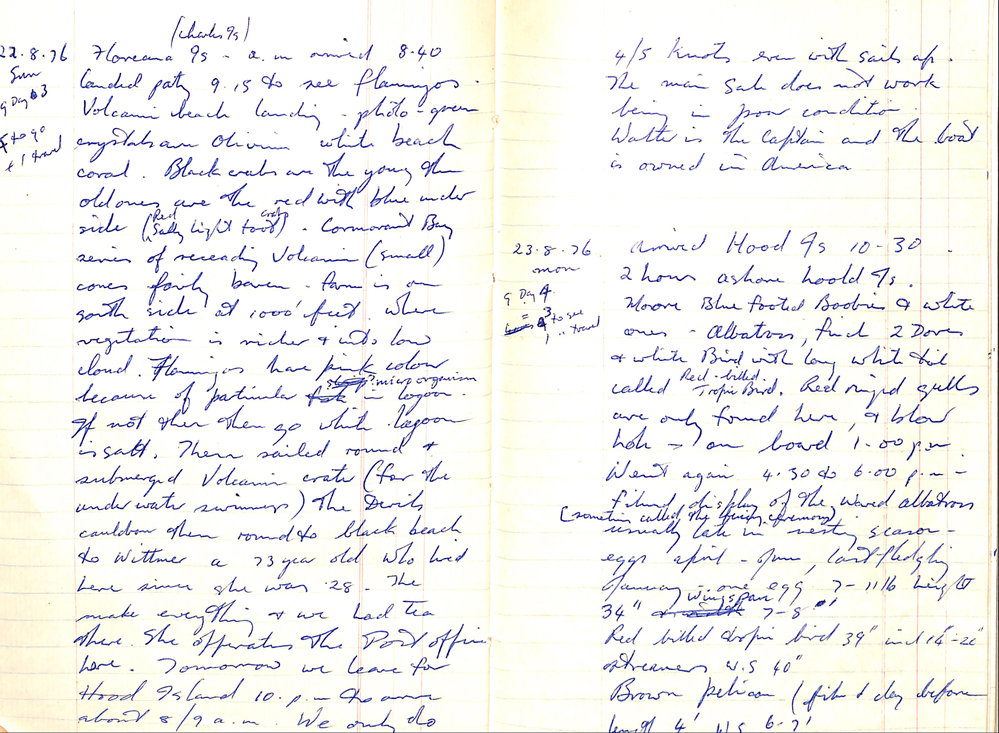 (Charles Is)
22.8.76 Floreana Is - a.m arrived 8.40
Sun landed party 9.15 to see flamingos.
g Day 3 Volcanic beach landing - photo - green
to go crystals are Olivine white beach
+ 1 travel coral. Black crabs are the young the
old ones are the red with blue under
side (Red Sally light foot crabs) - Cormorant Bay
series of receeding Volcanic (small)
cones fairly baren - farm is on
south side at 1000 feet where
vegetation is richer & into low
cloud. Flamingos have pink colour
because of paticular ? micro organism in lagoon.
If not there then go white. lagoon
is salt. Then sailed round &
submerged Volcanic crate (for the
under water swimmers) The Devils
cauldron then round to black beach
to Wittmer a 73 year old who lived
here since she was 28. The
make everything & we had tea
there. She opperates the Post office
here. Tomorrow we leave for
Hood Island 10. p.m to arrive
about 8/9 a.m. We only do
4/5 Knots even with sails up.
The main sale does not work
being in poor condition.
Walter is the Captain and the boat
is owned in America
23.8.76 arrived Hood Is 10-30.
mon 2 hours ashore hoold Is.
g Day 4 Moore Blue footed Boobies & white
= 3 to see ones - Albatross, 2 Doves
1 " travel & white Bird with long white tail
called Red-billed Tropic Bird. Red ringed gulls
are only found here, & blow
hole - on board 1.00 p.m.
Went again 4.30 to 6.00 p.m -
filmd display of the waved albatross
(sometimes called the ceremony)
usually late in nesty season -
eggs april - June, last fledgling
January - one egg 7-11 lb height
34" wingspan 7-8'
Red billed tropic bird 39" incl 16"-20"
streamers W.S 40"
Brown pelican (film & day before
length 4' W.S 6-7'